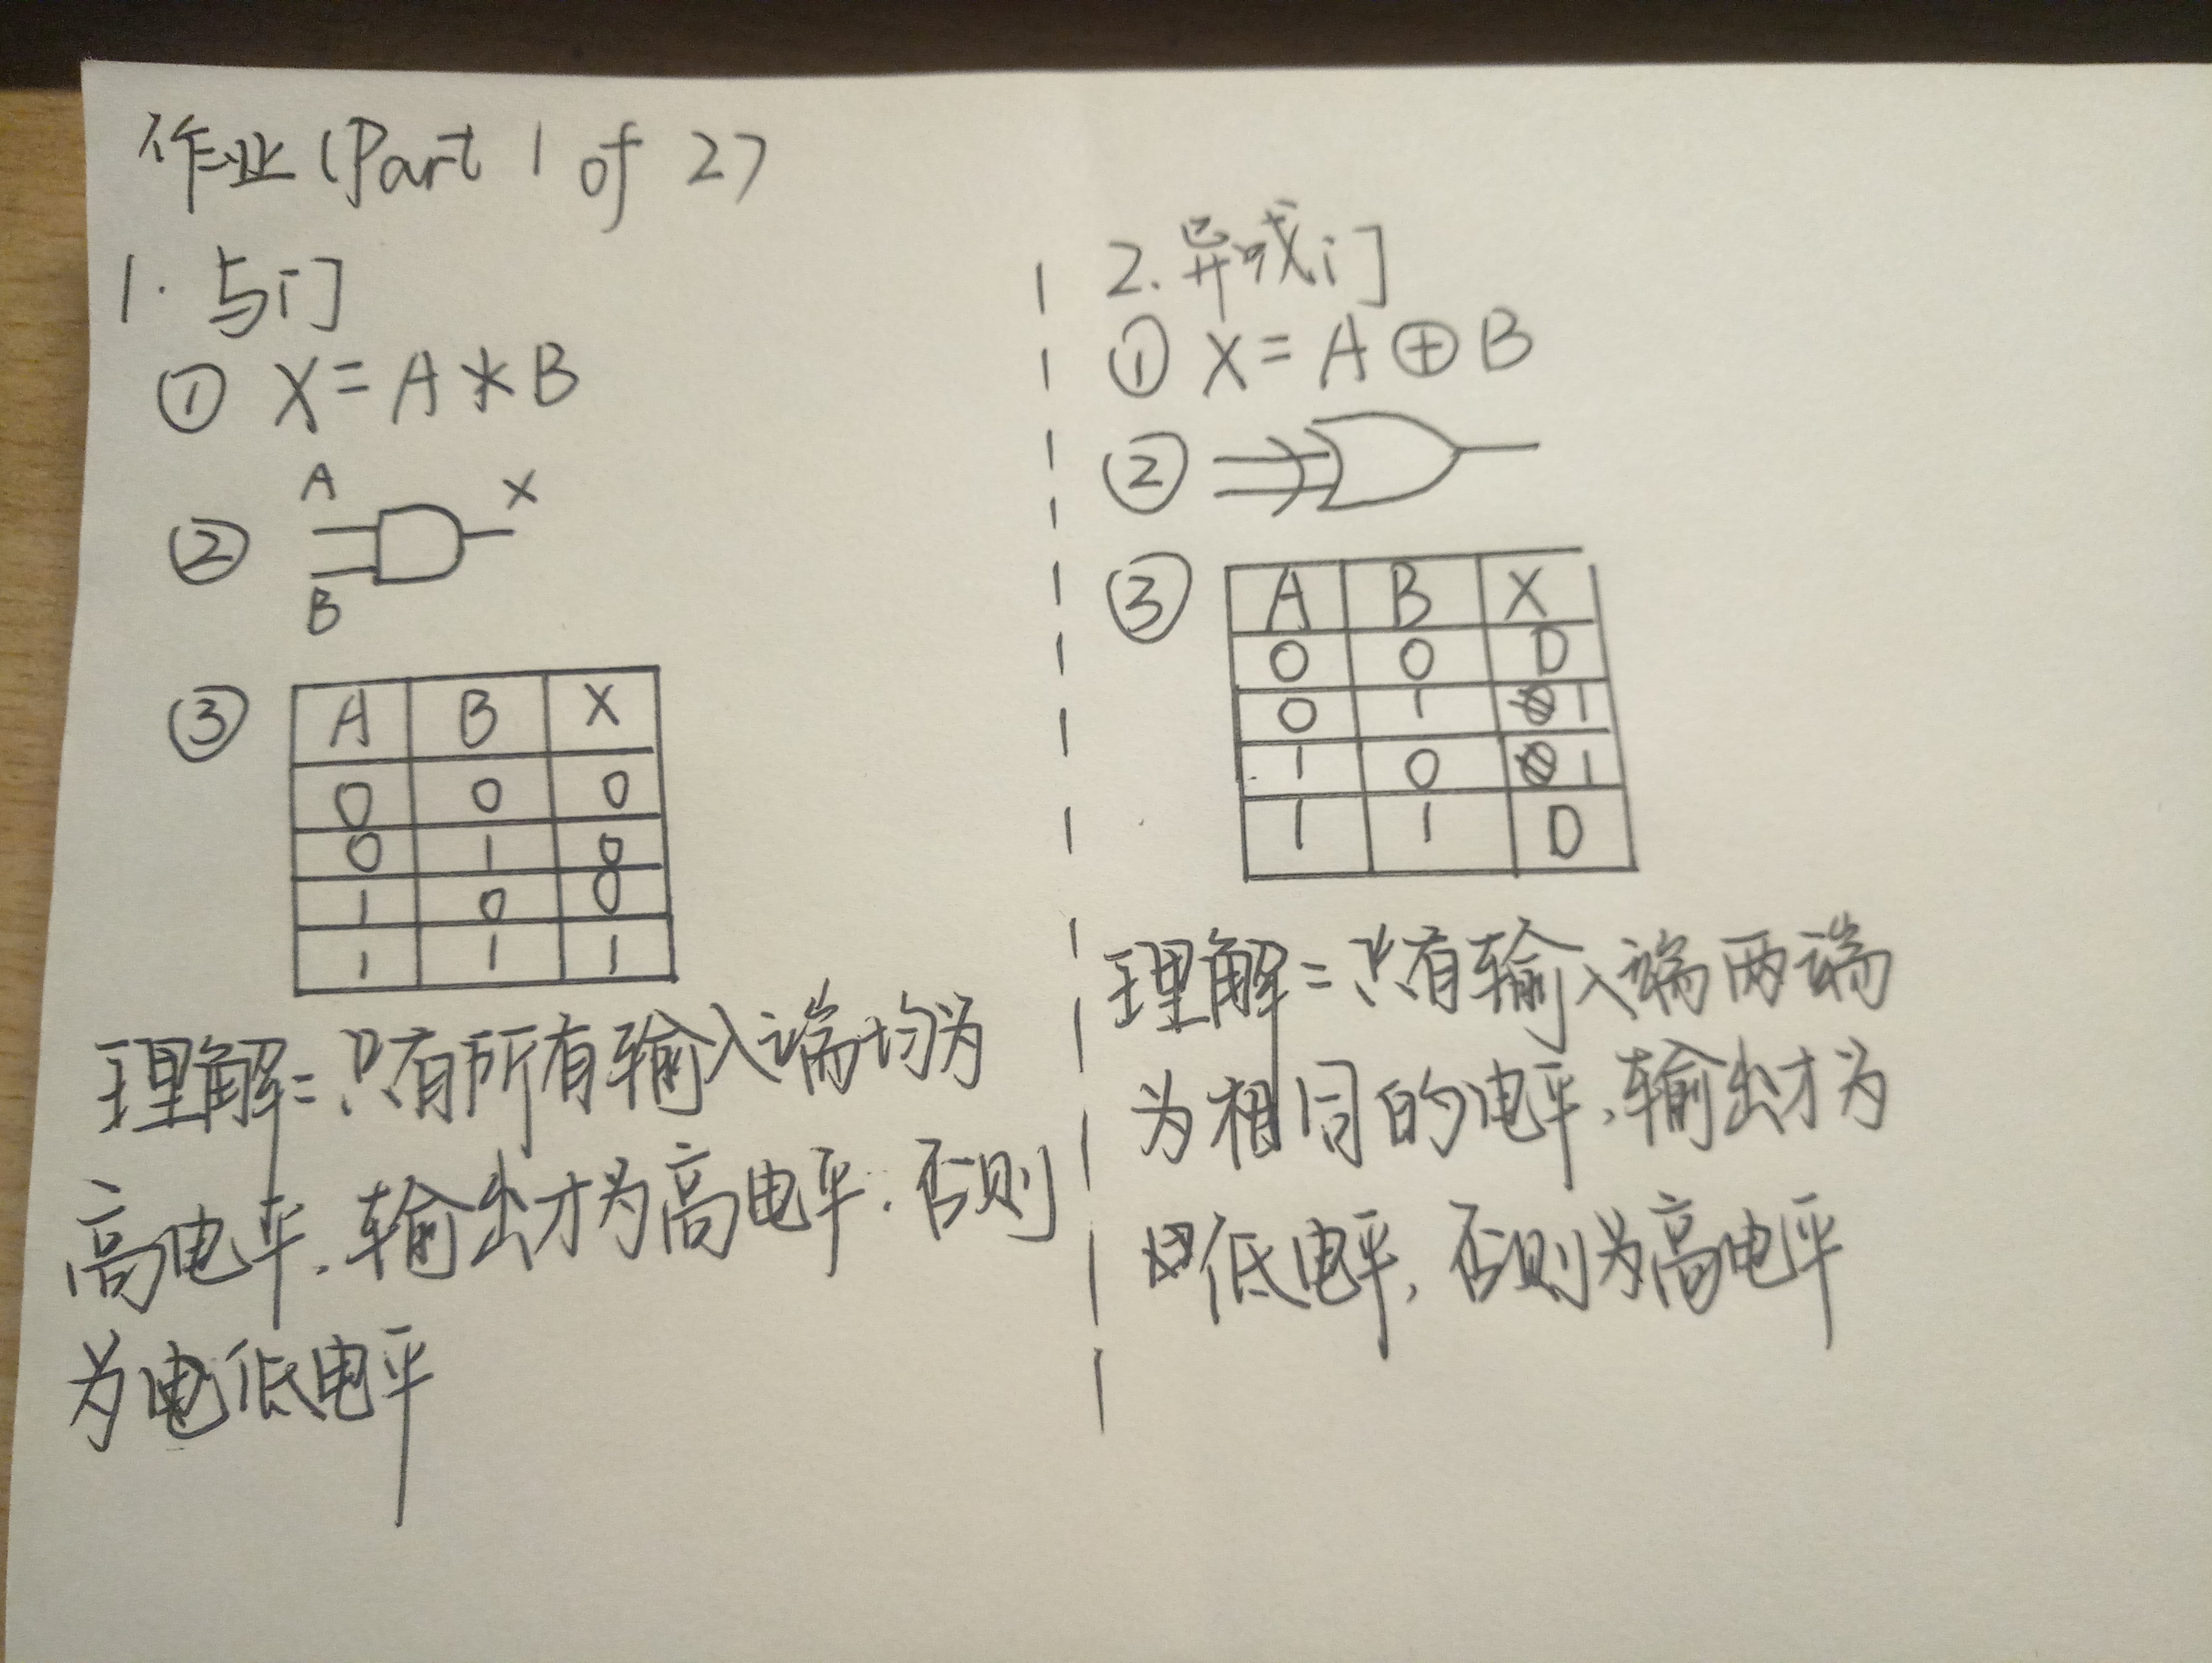 作业 (Part 1 of 2)
1. 与门
① X = A * B
②
A
X
B
③
A B X
0 0 0
0 1 0
1 0 0
1 1 1
理解=只有所有输入端均为
高电平.输出才为高电平.否则
为电低电平
2. 异或门
① X = A ⊕ B
②
③
A B X
0 0 0
0 1 1
1 0 1
1 1 0
理解=只有输入端两端
为相同的电平,输出才为
低电平,否则为高电平